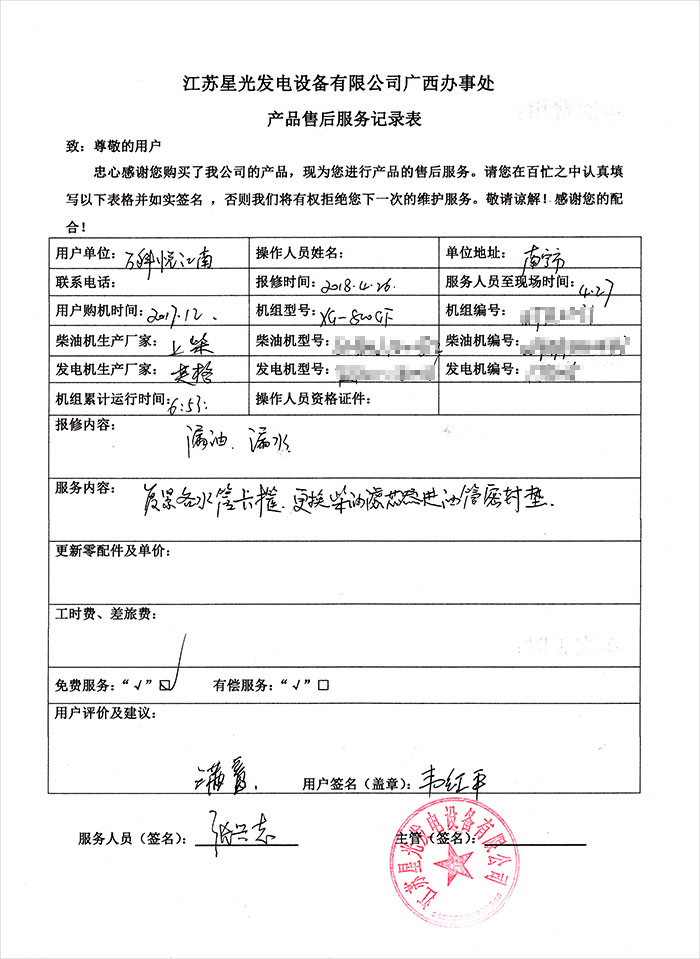 江苏星光发电设备有限公司广西办事处
产品售后服务记录表
致：尊敬的用户
忠心感谢您购买了我公司的产品，现为您进行产品的售后服务。请您在百忙之中认真填
写以下表格并如实签名，否则我们将有权拒绝您下一次的维护服务。敬请谅解！感谢您的配
合！
用户单位：万科悦江南 操作人员姓名： 单位地址：南宁市
联系电话： 报修时间：2018.4.26 服务人员至现场时间：4.27
用户购机时间：2017.12. 机组型号：XG-800GF 机组编号：
柴油机生产厂家：上柴 柴油机型号： 柴油机编号：
发电机生产厂家： 发电机型号： 发电机编号：
机组累计运行时间：6:53 操作人员资格证件：
报修内容：
漏油、漏水
服务内容：
各水管卡箍、更换柴油滤芯进油管密封垫.
更新零配件及单价：
工时费、差旅费：
免费服务：“√”☑ 有偿服务：“√”□
用户评价及建议：
满意. 用户签名（盖章）：韦红平
服务人员（签名）：张兴志 主管（签名）：
江苏星光发电设备有限公司